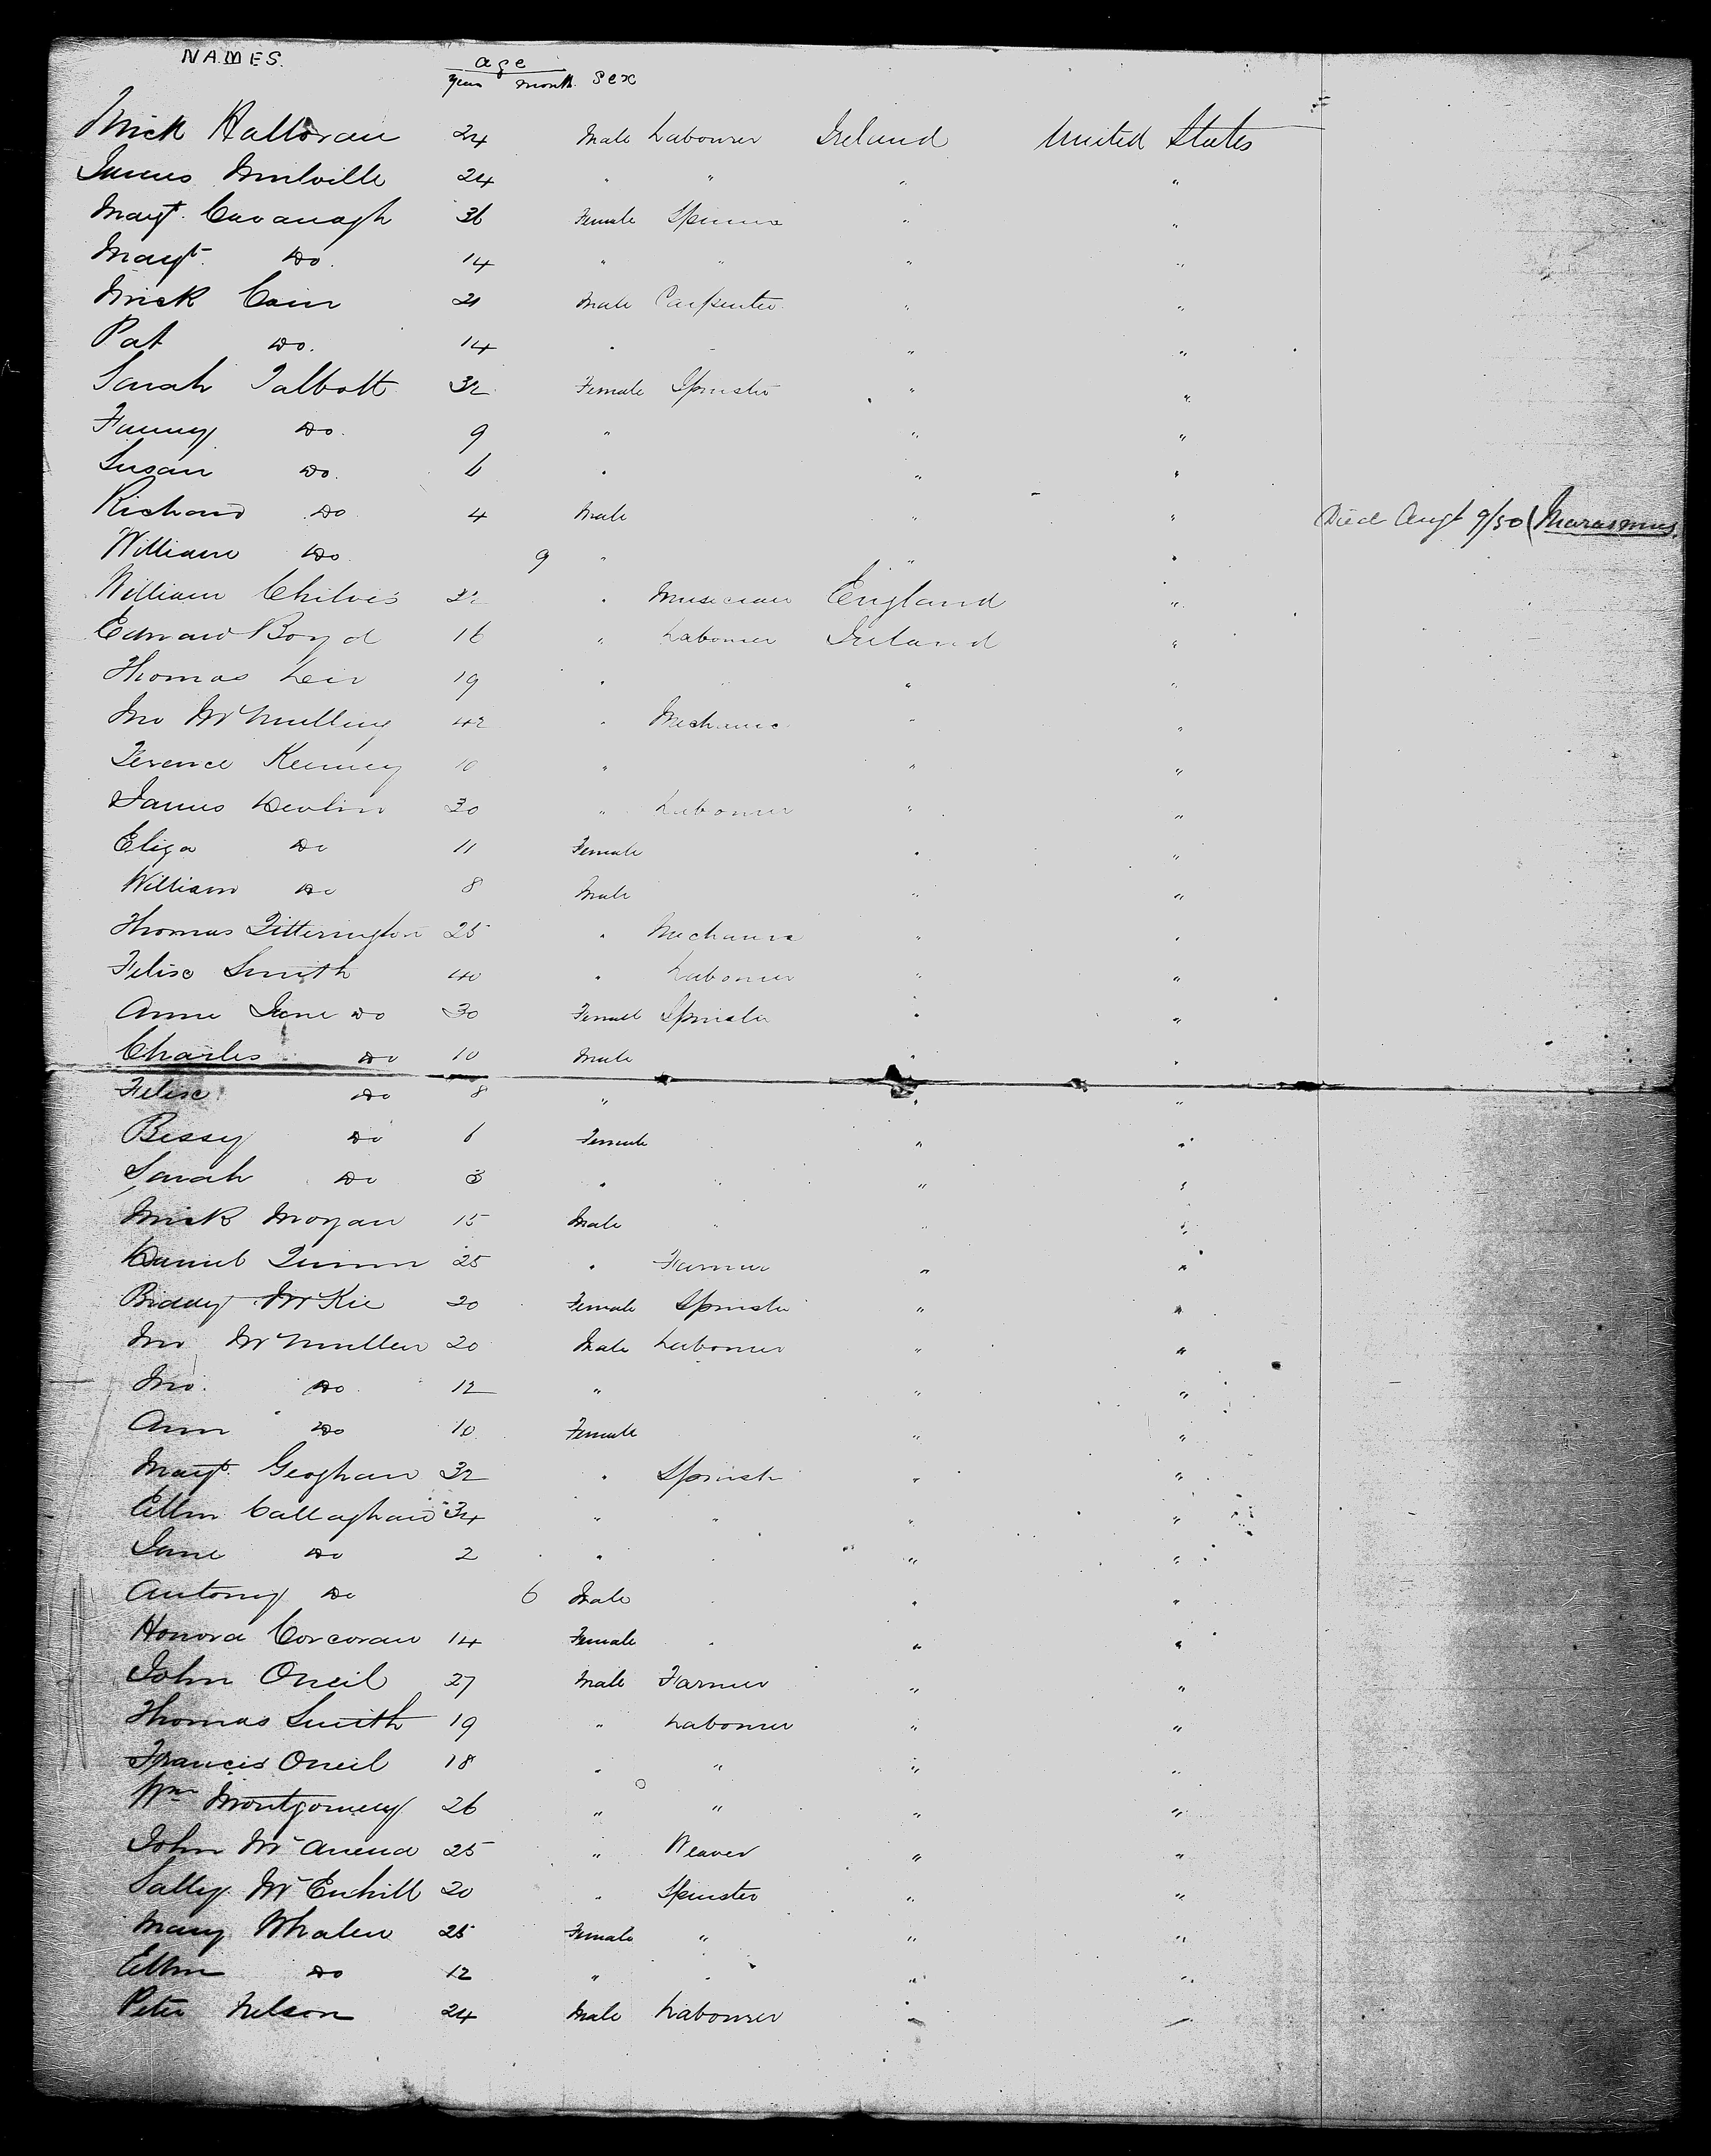 NAMES. age sex
Years month.
Mick Halloran 24 Male Labourer Ireland United States
James Mulville 24 " " " "
Margt. Cavanagh 36 Female Spinster " "
Margt. Do. 14 " " " "
Mick Cain 21 Male Carpenter " "
Pat Do. 14 " " " "
Sarah Talbott 32 Female Spinster " "
Fanny Do. 9 " " "
Susan Do. 6 " " "
Richard Do 4 Male " " Died Augt 9/50 (Marasmus.
William Do 9 " " "
William Chilvers 32 " Musician England "
Edward Boyd 16 " Labourer Ireland "
Thomas Leir 19 " " " "
Jno McMulling 42 " Mechanic " "
Terence Keenney 10 " " "
James Devlin 30 " Labourer " "
Eliza Do 11 Female " "
William Do 8 Male " "
Thomas Titterington 25 " Mechanic " "
Felise Smith 40 " Labourer " "
Anne Jane Do 30 Female Spinster " "
Charles Do 10 Male " "
Felise Do 8 " " "
Bessy Do 6 Female " "
Sarah Do 3 " " "
Mick Mogan 15 Male " " "
Daniel Quinn 25 " Farmer " "
Biddy McKie 20 Female Spinster " "
Jno McMullen 20 Male Labourer " "
Jno. Do 12 " " "
Ann Do 10 Female " "
Margt. Geoghan 32 " Spinster " "
Ellen Callaghan 34 " " " "
Jane Do 2 " " "
Antony Do 6 Male " "
Honora Corcoran 14 Female " "
John Oneil 27 Male Farmer " "
Thomas Smith 19 " Labourer " "
Francis Oneil 18 " " " "
Wm Montgomery 26 " " " "
John McAnena 25 " Weaver " "
Sally McEnhill 20 " Spinster " "
Mary Whalen 25 Female " " "
Ellen Do 12 " " " "
Peter Nelson 24 Male Labourer " "